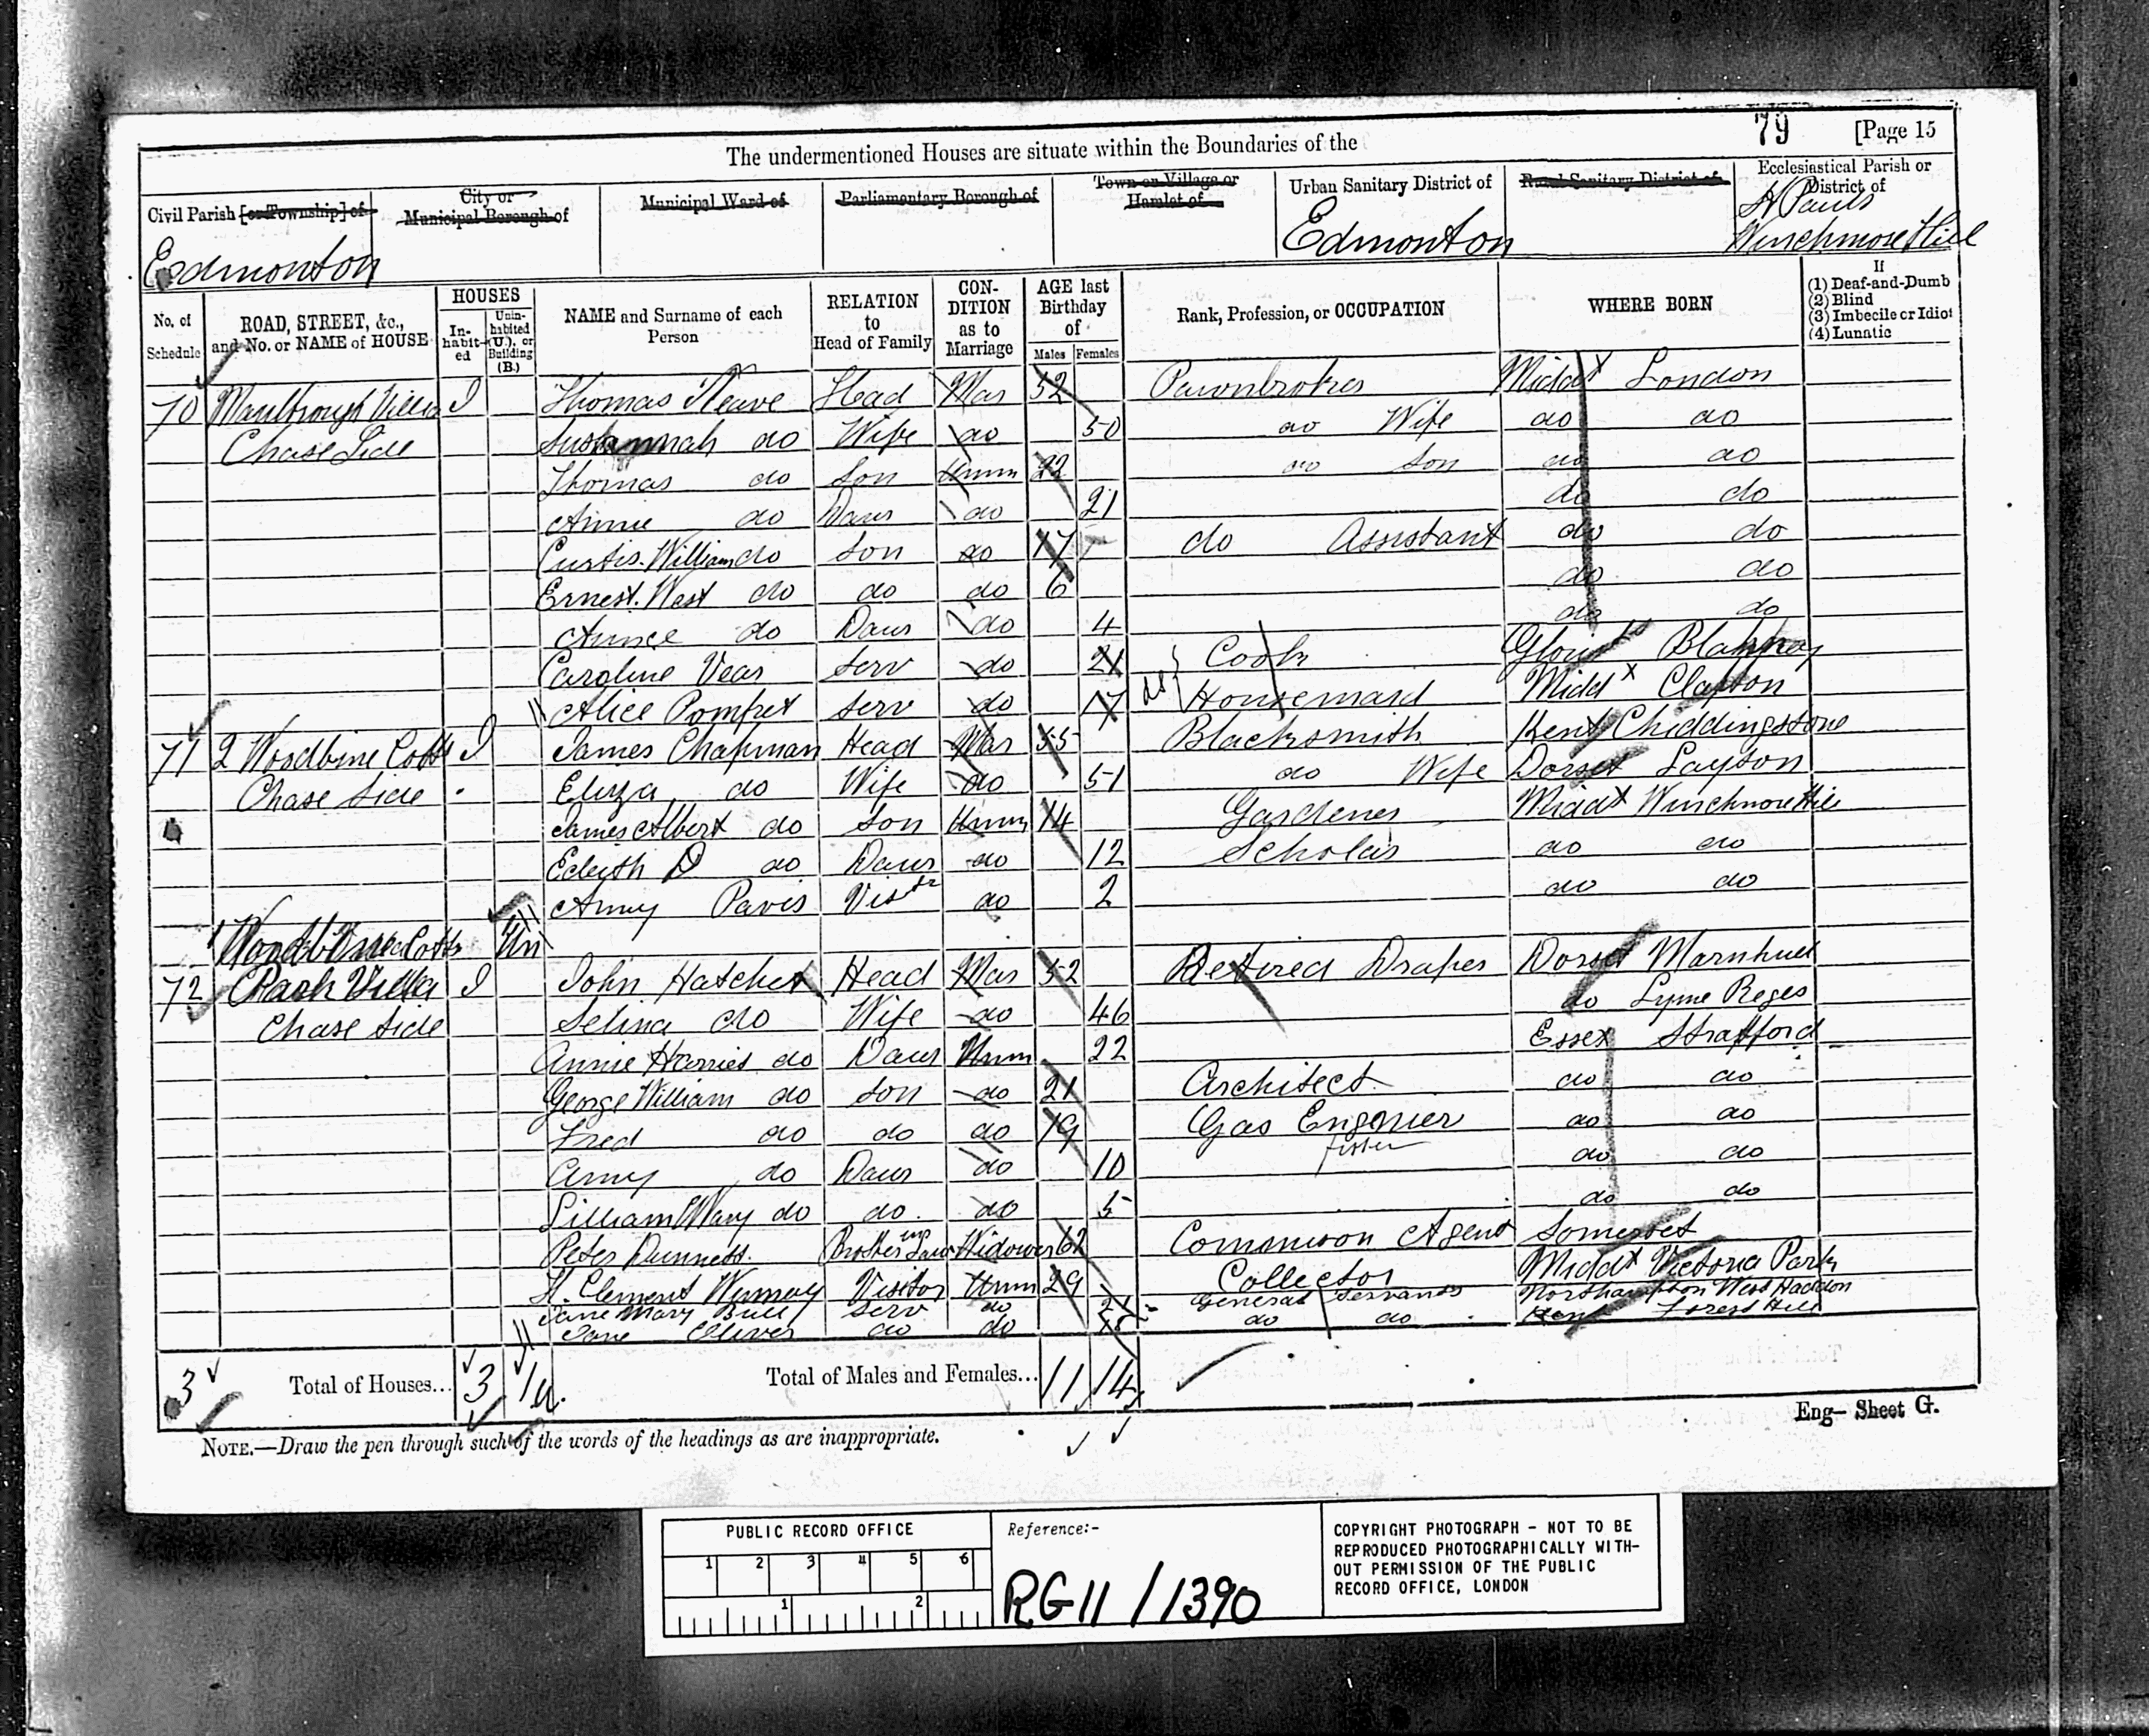 79 [Page 15
The undermentioned Houses are situate within the Boundaries of the
Civil Parish [or Township] of City or Municipal Borough of Municipal Ward of Parliamentary Borough of Town or Village or Hamlet of Urban Sanitary District of Rural Sanitary District of Ecclesiastical Parish or District of
Edmonton Edmonton St Pauls Winchmore Hill
No. of Schedule ROAD, STREET, &c., and No. or NAME of HOUSE HOUSES In-habit-ed Unin-habited (U.), or Building (B.) NAME and Surname of each Person RELATION to Head of Family CON-DITION as to Marriage AGE last Birthday of Males Females Rank, Profession, or OCCUPATION WHERE BORN If (1) Deaf-and-Dumb (2) Blind (3) Imbecile or Idiot (4) Lunatic
70 Marlbrough Villa I Thomas Neave Head Mar 52 Pawnbroker Middx London
Chase Side Susannah do Wife do 50 do Wife do do
Thomas do Son Unm 22 do Son do do
Annie do Daur do 21 do do
Curtis William do Son do 17 do Assistant do do
Ernest West do do do 6 do do
do Daur do 4 do do
Caroline Vear Serv do 21 Cook
Alice Pomfret Serv do 17 Housemaid Middx Clapton
71 2 Woodbine Cotts I James Chapman Head Mar 55 Blacksmith Kent Chiddingstone
Chase Side Eliza do Wife do 51 do Wife Dorset
James Albert do Son Unm 14 Gardener Middx Winchmore Hill
Edyth D do Daur do 12 Scholar do do
Amy Pavis Vistr do 2 do do
1 Woodbine Cotts Un
72 Park Villa I John Hatcher Head Mar 52 Retired Draper Dorset Marnhull
Chase Side Selina do Wife do 46 do Lyme Reges
Annie Harriet do Daur Unm 22 Essex Stratford
George William do Son do 21 Architect do do
Fred do do do 19 Gas Engenier fitter do do
Amy do Daur do 10 do do
Lilliam Mary do do do 5 do do
Peter Dunnett Brother in Law Widower 62 Commison Agent Somerset
Clement Visitor Unm 29 Collector Middx Victoria Park
Jane Mary Bull Serv do 21 General Servant Northampton West Haddon
Jane Oliver do do do do Kent Forest Hill
3 Total of Houses... 3 1u. Total of Males and Females... 11 14
Eng— Sheet G.
NOTE.—Draw the pen through such of the words of the headings as are inappropriate.
PUBLIC RECORD OFFICE
1 2 3 4 5 6
1 2
Reference:-
RG11/1390
COPYRIGHT PHOTOGRAPH - NOT TO BE
REPRODUCED PHOTOGRAPHICALLY WITH-
OUT PERMISSION OF THE PUBLIC
RECORD OFFICE, LONDON